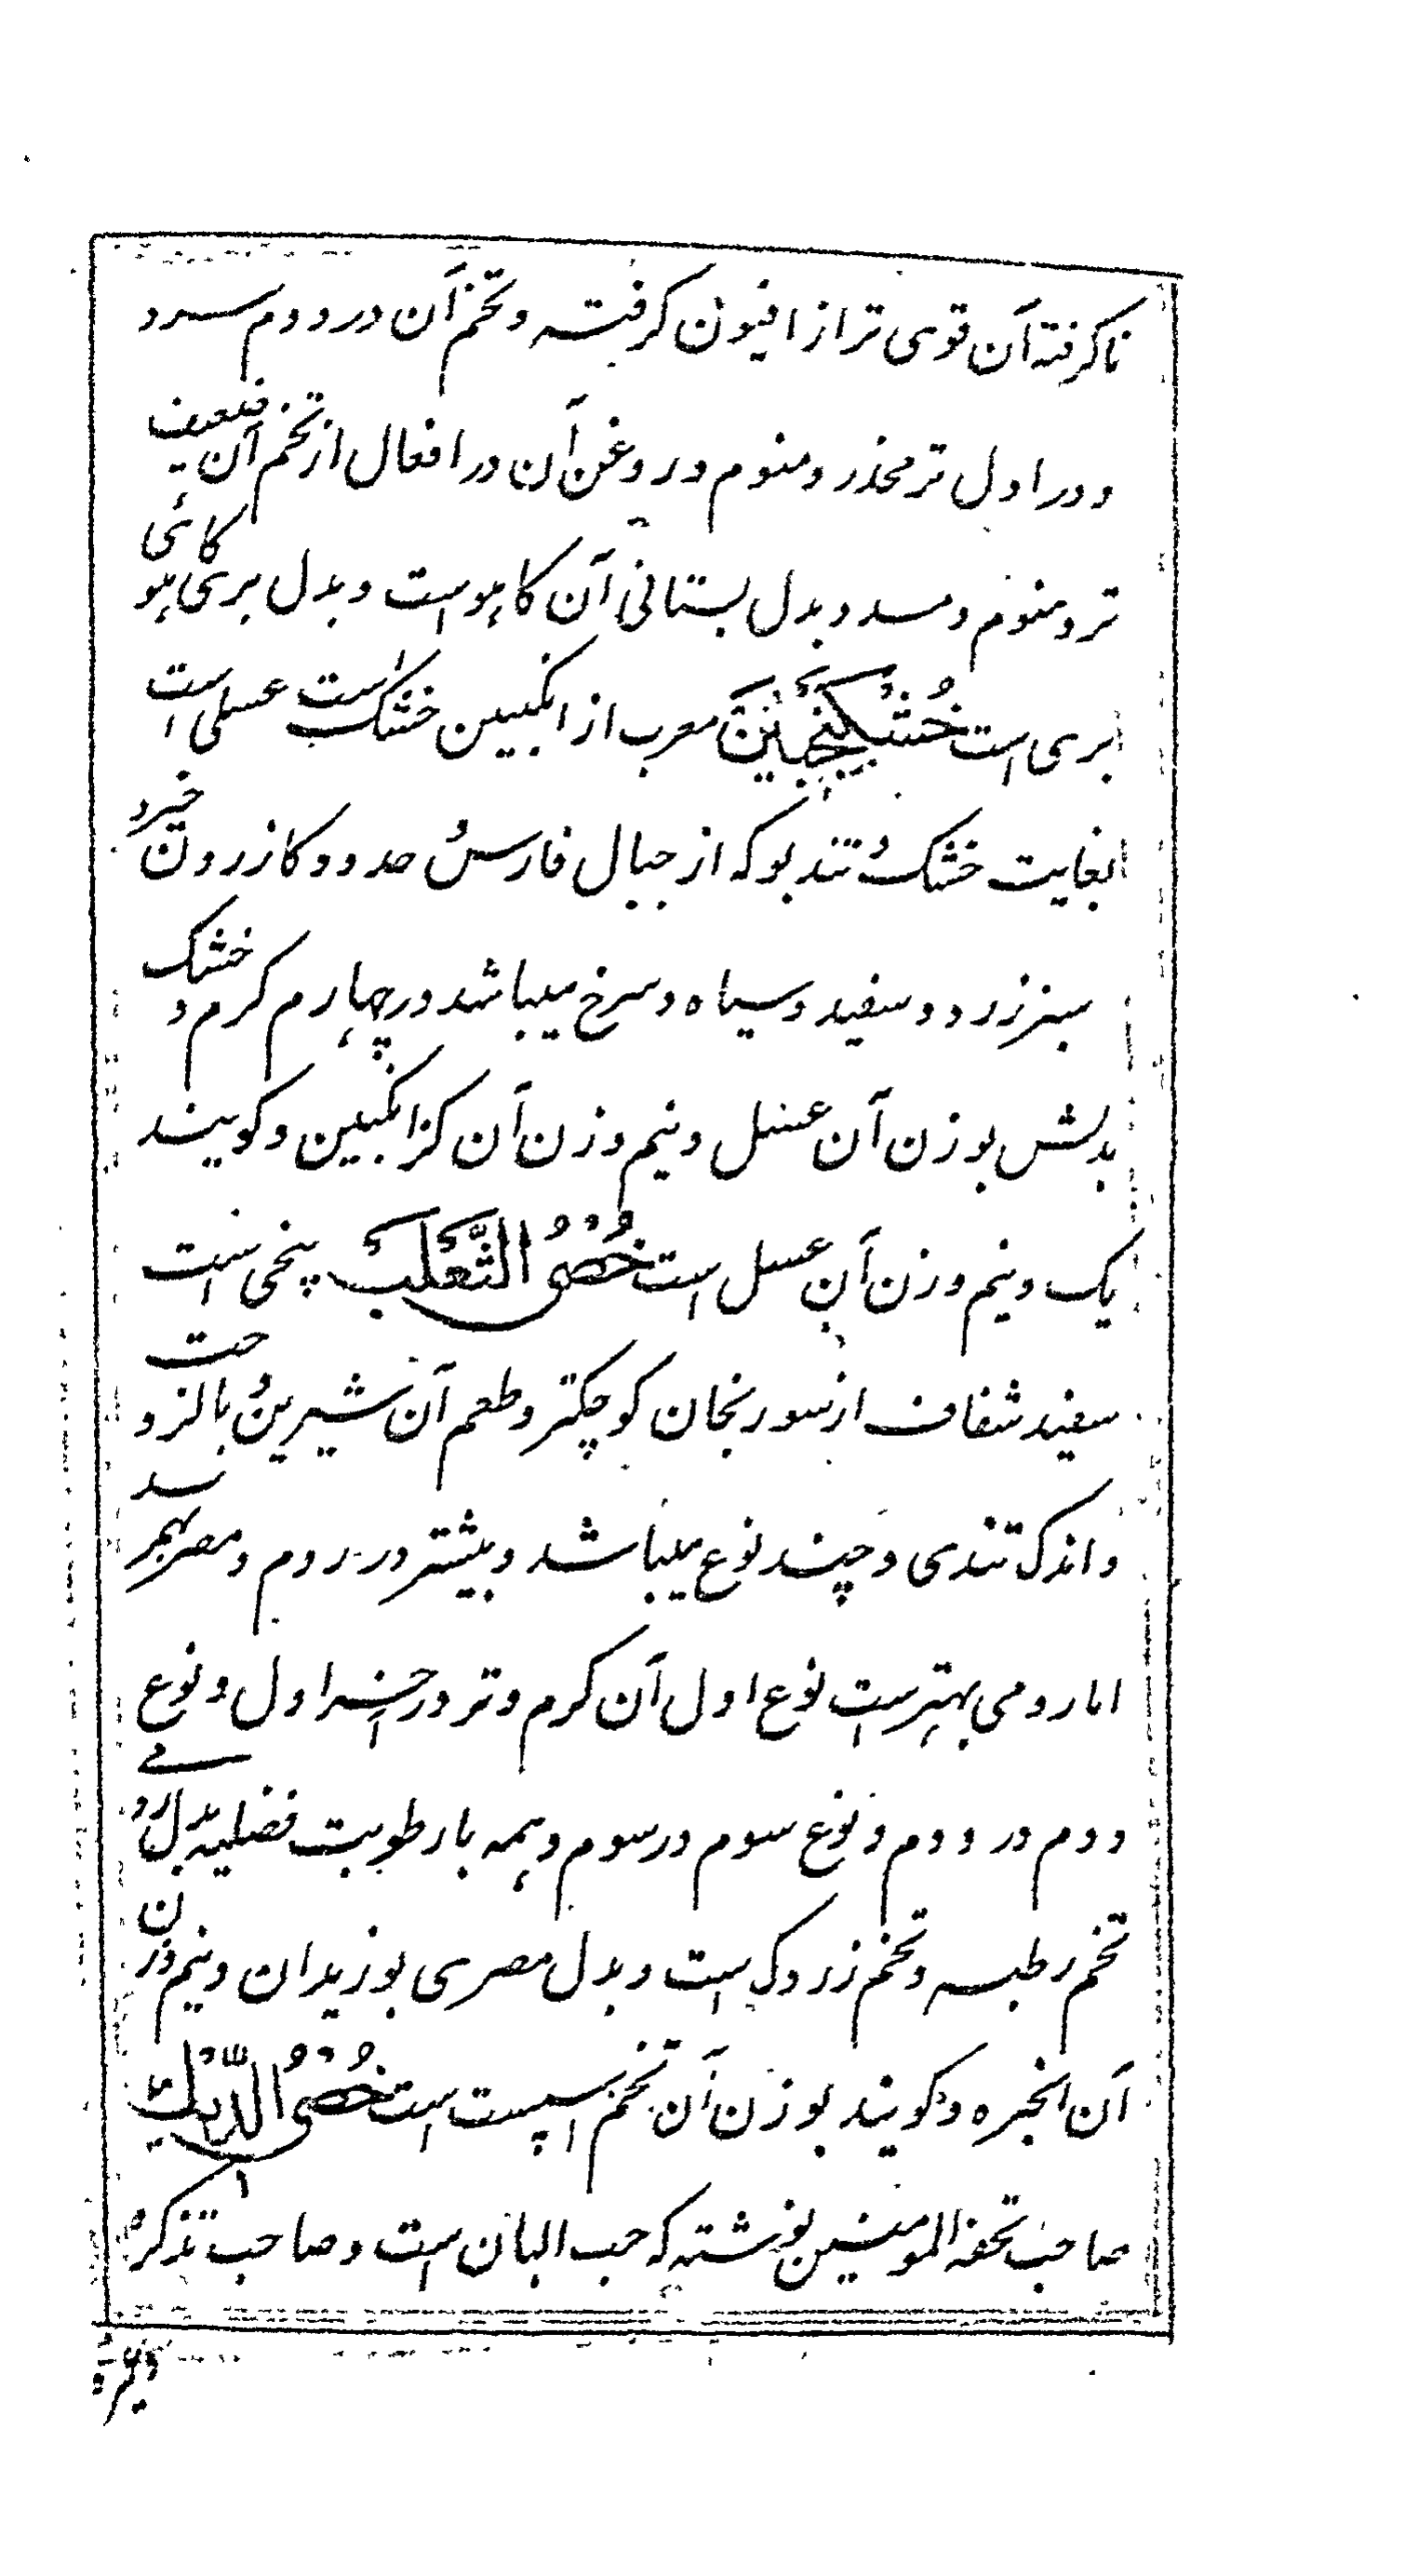 ناکرفته آن قوی تر از افیون کرفته و تخم آن در دوم سرد
و در اول تر مخدر و منوم و روغن آن در افعال از تخم آن ضعیف
تر و منوم و مسدد و بدل بستانی آن کاهو است و بدل بری کاهوی
بری است خُشکَنجَبینَ معرب از انکبین خشک است عسلی است
بغایت خشک و تند بو که از جبال فارس و حدود کازرون خیزد
سبز زرد و سفید و سیاه و سرخ میباشد در چهارم کرم و خشک
بدلش بوزن آن عسل و نیم وزن آن کزانکبین و کویند
یک و نیم وزن آن عسل است خُصیُ الثَّعلَب بیخی است
سفید شفاف از سورنجان کوچکتر و طعم آن شیرین و با لزوجت
و اندک تندی و چند نوع میباشد و بیشتر در روم و مصر بهم رسد
اما رومی بهتر است نوع اول آن کرم و تر در آخر اول و نوع
دوم در دوم و نوع سوم در سوم و همه با رطوبت فضلیه بدل رومی
تخم رطبه و تخم زردک است و بدل مصری بوزیدان و نیم وزن
آن انجره و کویند بوزن آن تخم اسپست است خُصیُ الدِّیک
صاحب تحفة المومنین نوشته که حب البان است و صاحب تذکره
وغیره